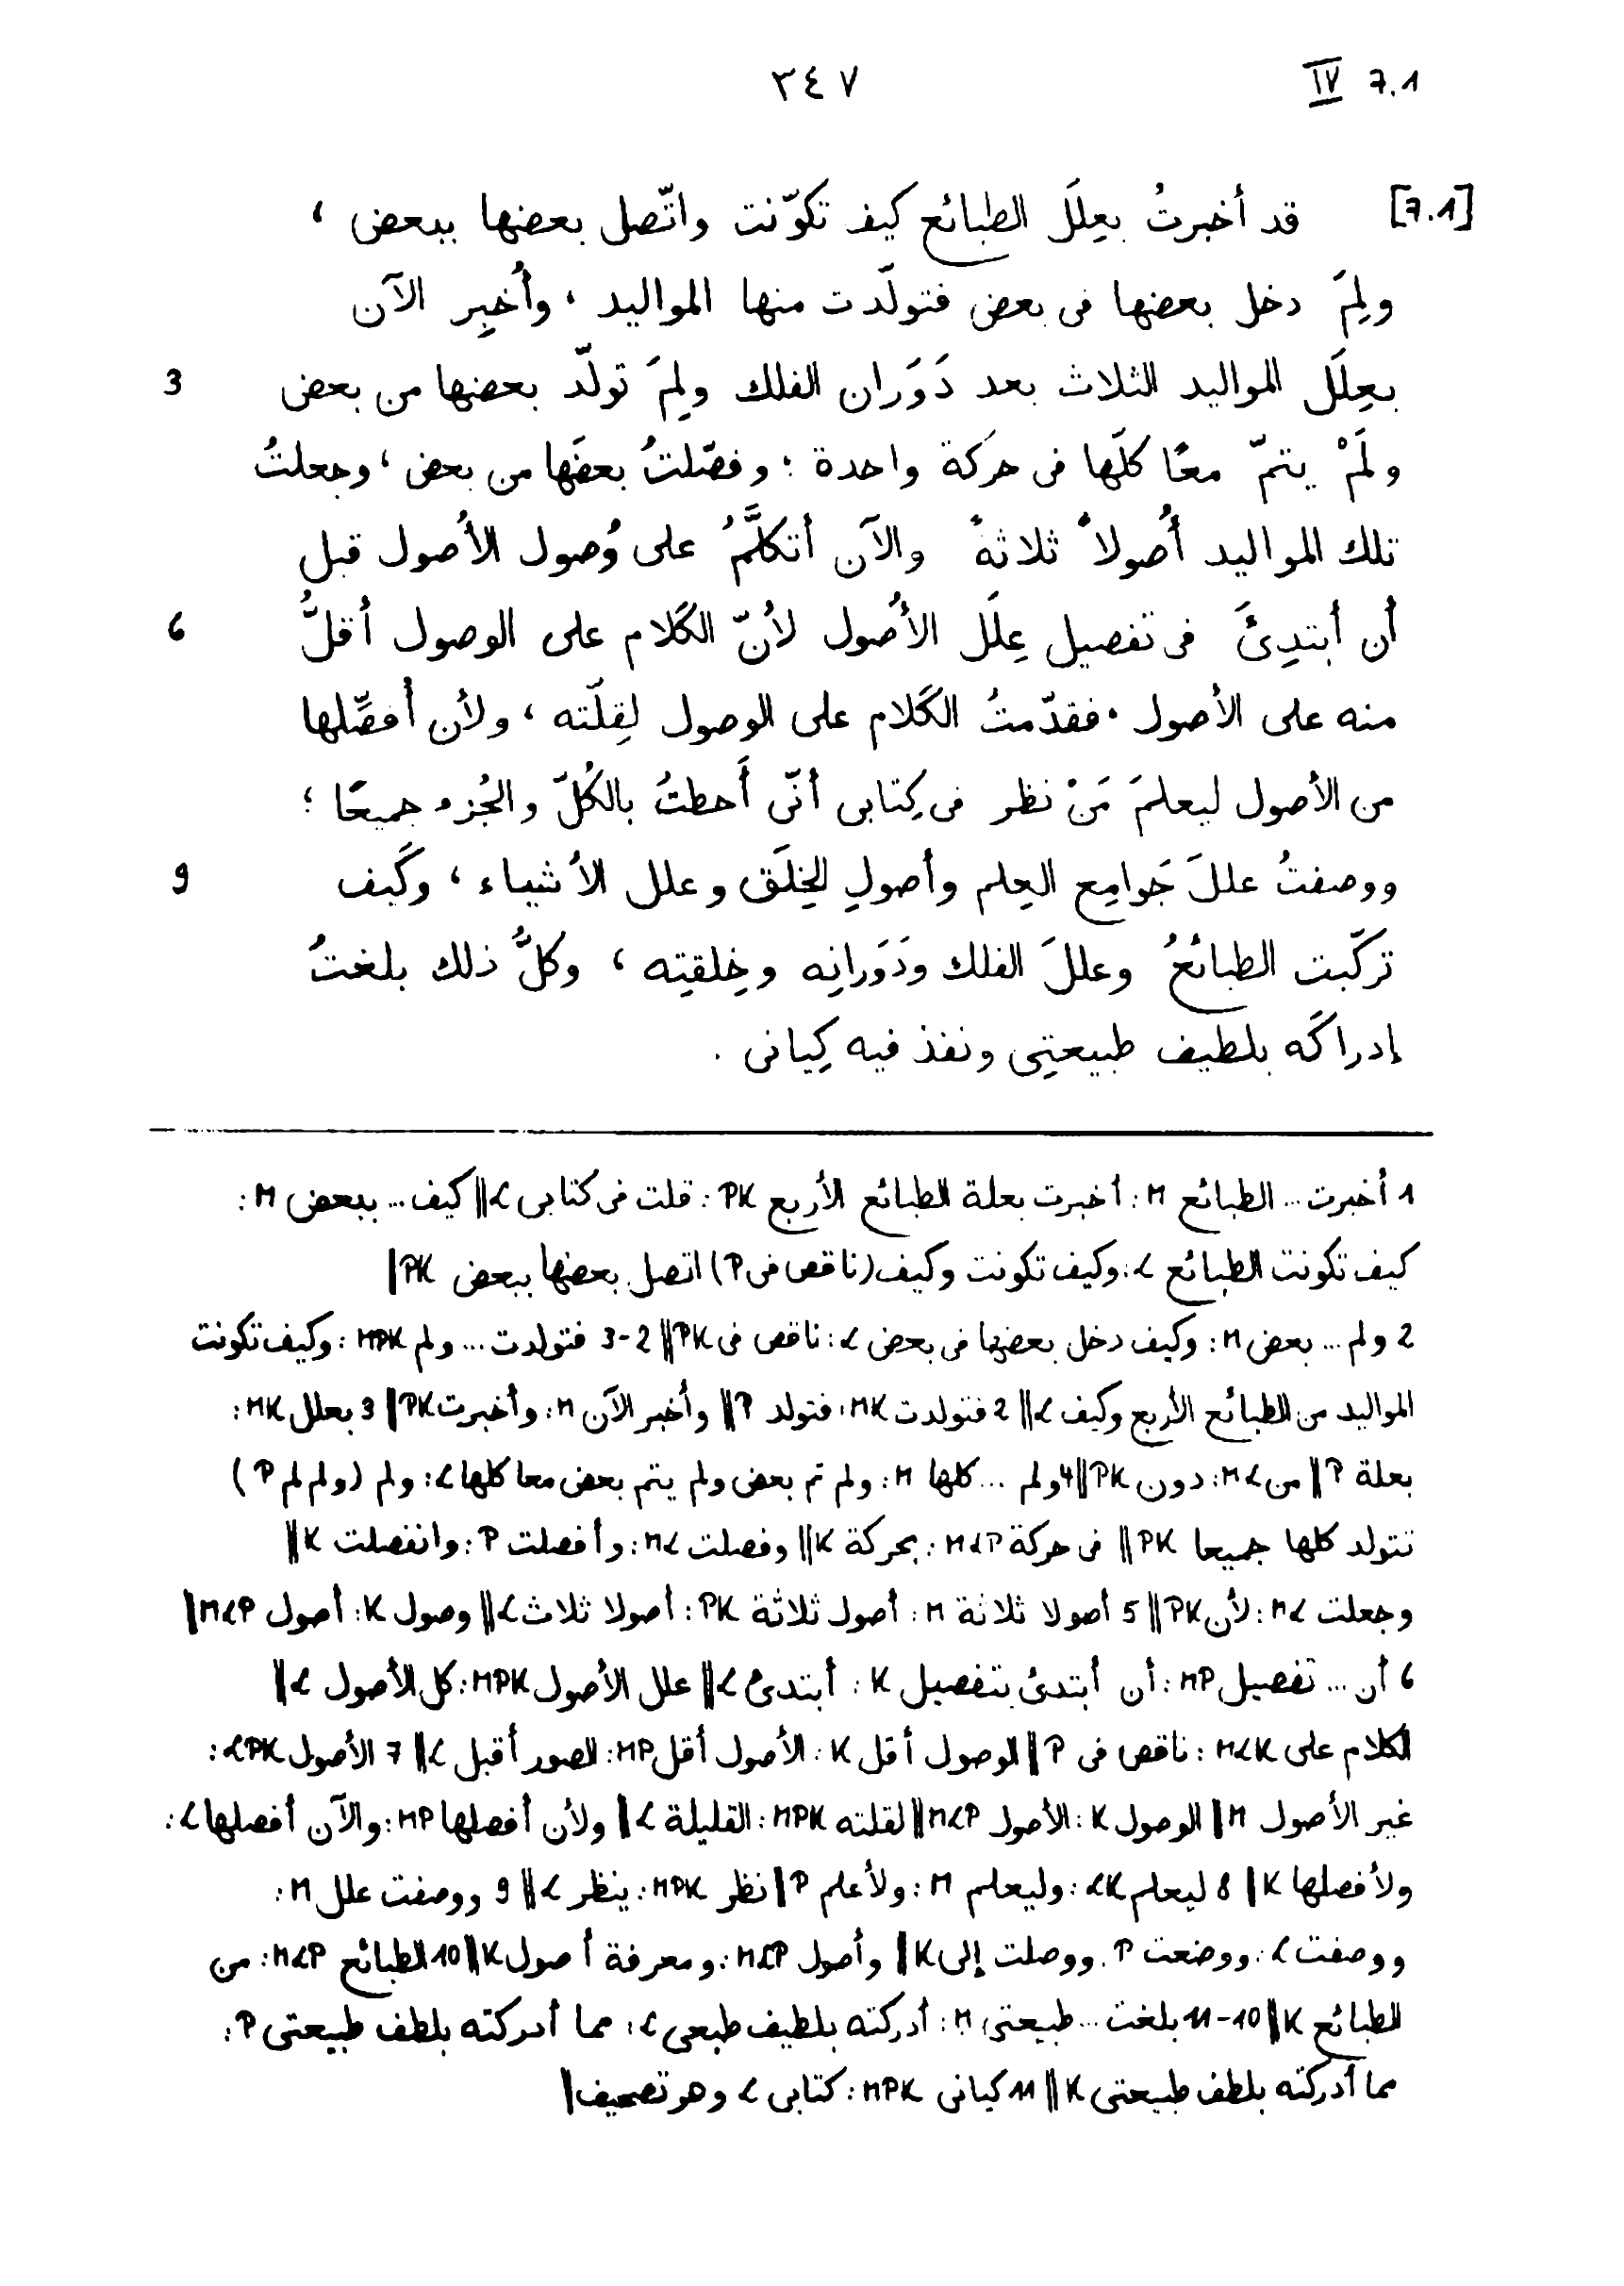 ٣٤٧ IV 7.1
[7.1] قد أخبرتُ بعِلَلَ الطبائع كيف تكوّنت واتّصل بعضها ببعض ،
ولِمَ دخل بعضها فى بعض فتولّدت منها المواليد ، وأُخبِر الآن
بعِلَل المواليد الثلاث بعد دَوَران الفلك ولِمَ تولّد بعضها من بعض 3
ولَمْ يتمّ معًا كلّها فى حركة واحدة ؛ وفصّلتُ بعضَها من بعض ، وجعلتُ
تلك المواليد أُصولاً ثلاثةً والآن أتكلَّمُ على وُصول الأُصول قبل
أن أبتدِئَ فى تفصيل عِلَل الأُصول لأنّ الكَلام على الوصول أقلُّ 6
منه على الأصول . فقدّمتُ الكَلام على الوصول لِقِلّته ، ولأن أُفصِّلها
من الأصول ليعلمَ مَنْ نظر فى كِتابى أنّى أَحطتُ بالكُلّ والجُزء جميعًا ؛
ووصفتُ عللَ جَوامِع العِلم وأصولِ الخِلَق وعلل الأشياء ، وكَيف 9
تركّبت الطبائعُ وعللَ الفلك ودَوَرانِه وخِلقتِه ، وكلُّ ذلك بلغتُ
إدراكَه بلطيف طبيعتِى ونفذ فيه كِيانى .
1 أخبرت ... الطبائع M : أخبرت بعلة الطبائع الأربع PK : قلت فى كتابى L || كيف ... ببعض M :
كيف تكونت الطبائع L : وكيف تكونت وكيف (ناقص فى P) اتصل بعضها ببعض PK |
2 ولم ... بعض M : وكيف دخل بعضها فى بعض L : ناقص فى PK || 2-3 فتولدت ... ولم MPK : وكيف تكونت
المواليد من الطبائع الأربع وكيف L || 2 فتولدت MK : فتولد P || وأخبر الآن M : وأخبرت PK | 3 بعلل MK :
بعلة P || من ML : دون PK || 4 ولم ... كلها M : ولم تم بعض ولم يتم بعض معا كلها L : ولم (ولم لم P)
تتولد كلها جميعا PK || فى حركة MLP : بحركة K || وفصلت ML : وأفصلت P : وانفصلت K ||
وجعلت ML : لأن PK || 5 أصولا ثلاثة M : أصول ثلاثة PK : أصولا ثلاث L || وصول K : أصول MLP |
6 أن ... تفصيل MP : أن أبتدئ بتفصيل K : أبتدئ L || علل الأصول MPK : كل الأصول L ||
الكلام على MLK : ناقص فى P || الوصول أقل K : الأصول أقل MP : الصور أقبل L || 7 الأصول LPK :
غير الأصول M || الوصول K : الأصول MLP || لقلته MPK : القليلة L || ولأن أفصلها MP : والآن أفصلها L :
ولأفصلها K | 8 ليعلم LK : وليعلم M : ولأعلم P | نظر MPK : ينظر L || 9 ووصفت علل M :
ووصفت L : ووضعت P : ووصلت إلى K || وأصول MLP : ومعرفة أصول K || 10 الطبائع MLP : من
الطبائع K || 10-11 بلغت ... طبيعتى M : أدركته بلطيف طبعى L : مما أدركته بلطف طبيعتى P :
مما أدركته بلطف طبيعتى K || 11 كيانى MPK : كتابى L وهو تصحيف |